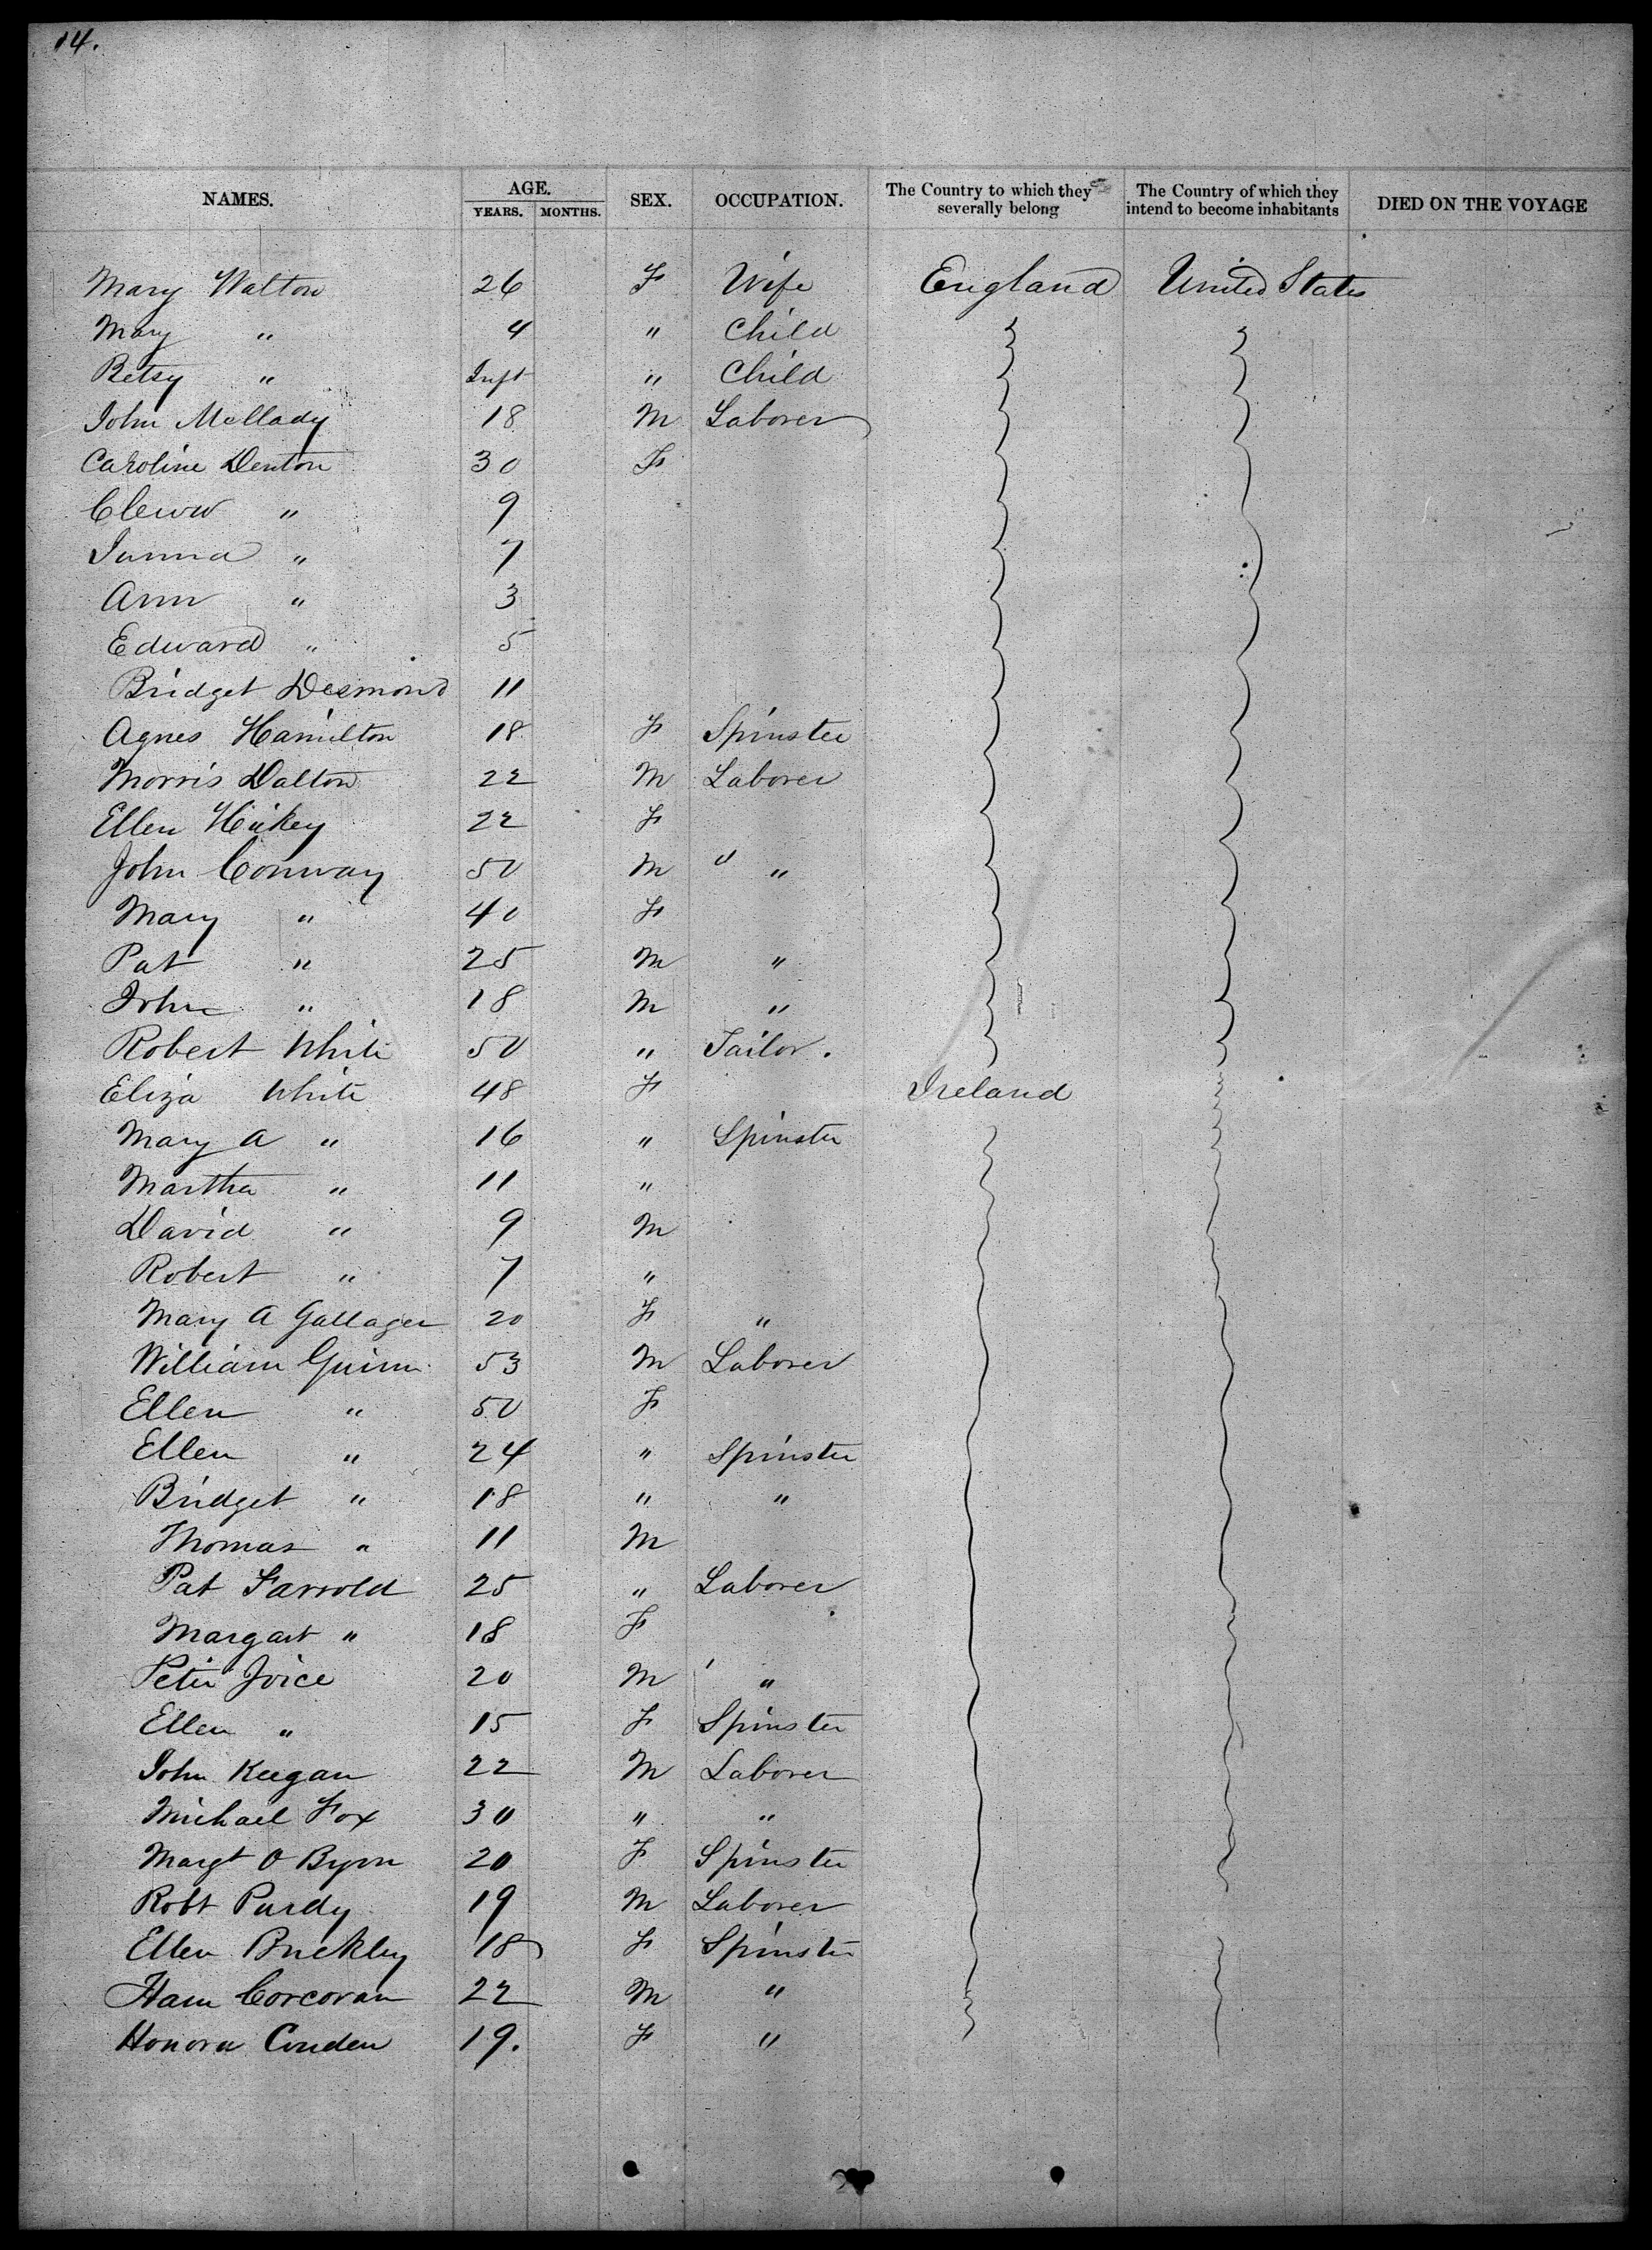 14.
NAMES. AGE. YEARS. MONTHS. SEX. OCCUPATION. The Country to which they severally belong The Country of which they intend to become inhabitants DIED ON THE VOYAGE
Mary Walton 26 F Wife England United States
Mary " 4 " Child
Betsy " Inft " Child
John Mellady 18 M Laborer
Caroline Denton 30 F
" 9
" 7
Ann " 3
Edward " 5
Bridget Desmond 11
Agnes Hamilton 18 F Spinster
Morris Dalton 22 M Laborer
Ellen Hickey 22 F
John Conway 50 M " "
Mary " 40 F
Pat " 25 M "
John " 18 M "
Robert White 50 " Tailor.
Eliza White 48 F Ireland
Mary A " 16 " Spinster
Martha " 11 "
David " 9 M
Robert " 7 "
Mary A Gallager 20 F "
William Guinn 53 M Laborer
Ellen " 50 F
Ellen " 24 " Spinster
Bridget " 18 " "
Thomas " 11 M
Pat Farrold 25 " Laborer
Margart " 18 F
Peter Joice 20 M "
Ellen " 15 F Spinster
John Keegan 22 M Laborer
Michael Fox 30 " "
Margt O Byrn 20 F Spinster
Robt Purdy 19 M Laborer
Ellen Buckley 18 F Spinster
Corcoran 22 M "
Honora Conden 19. F "